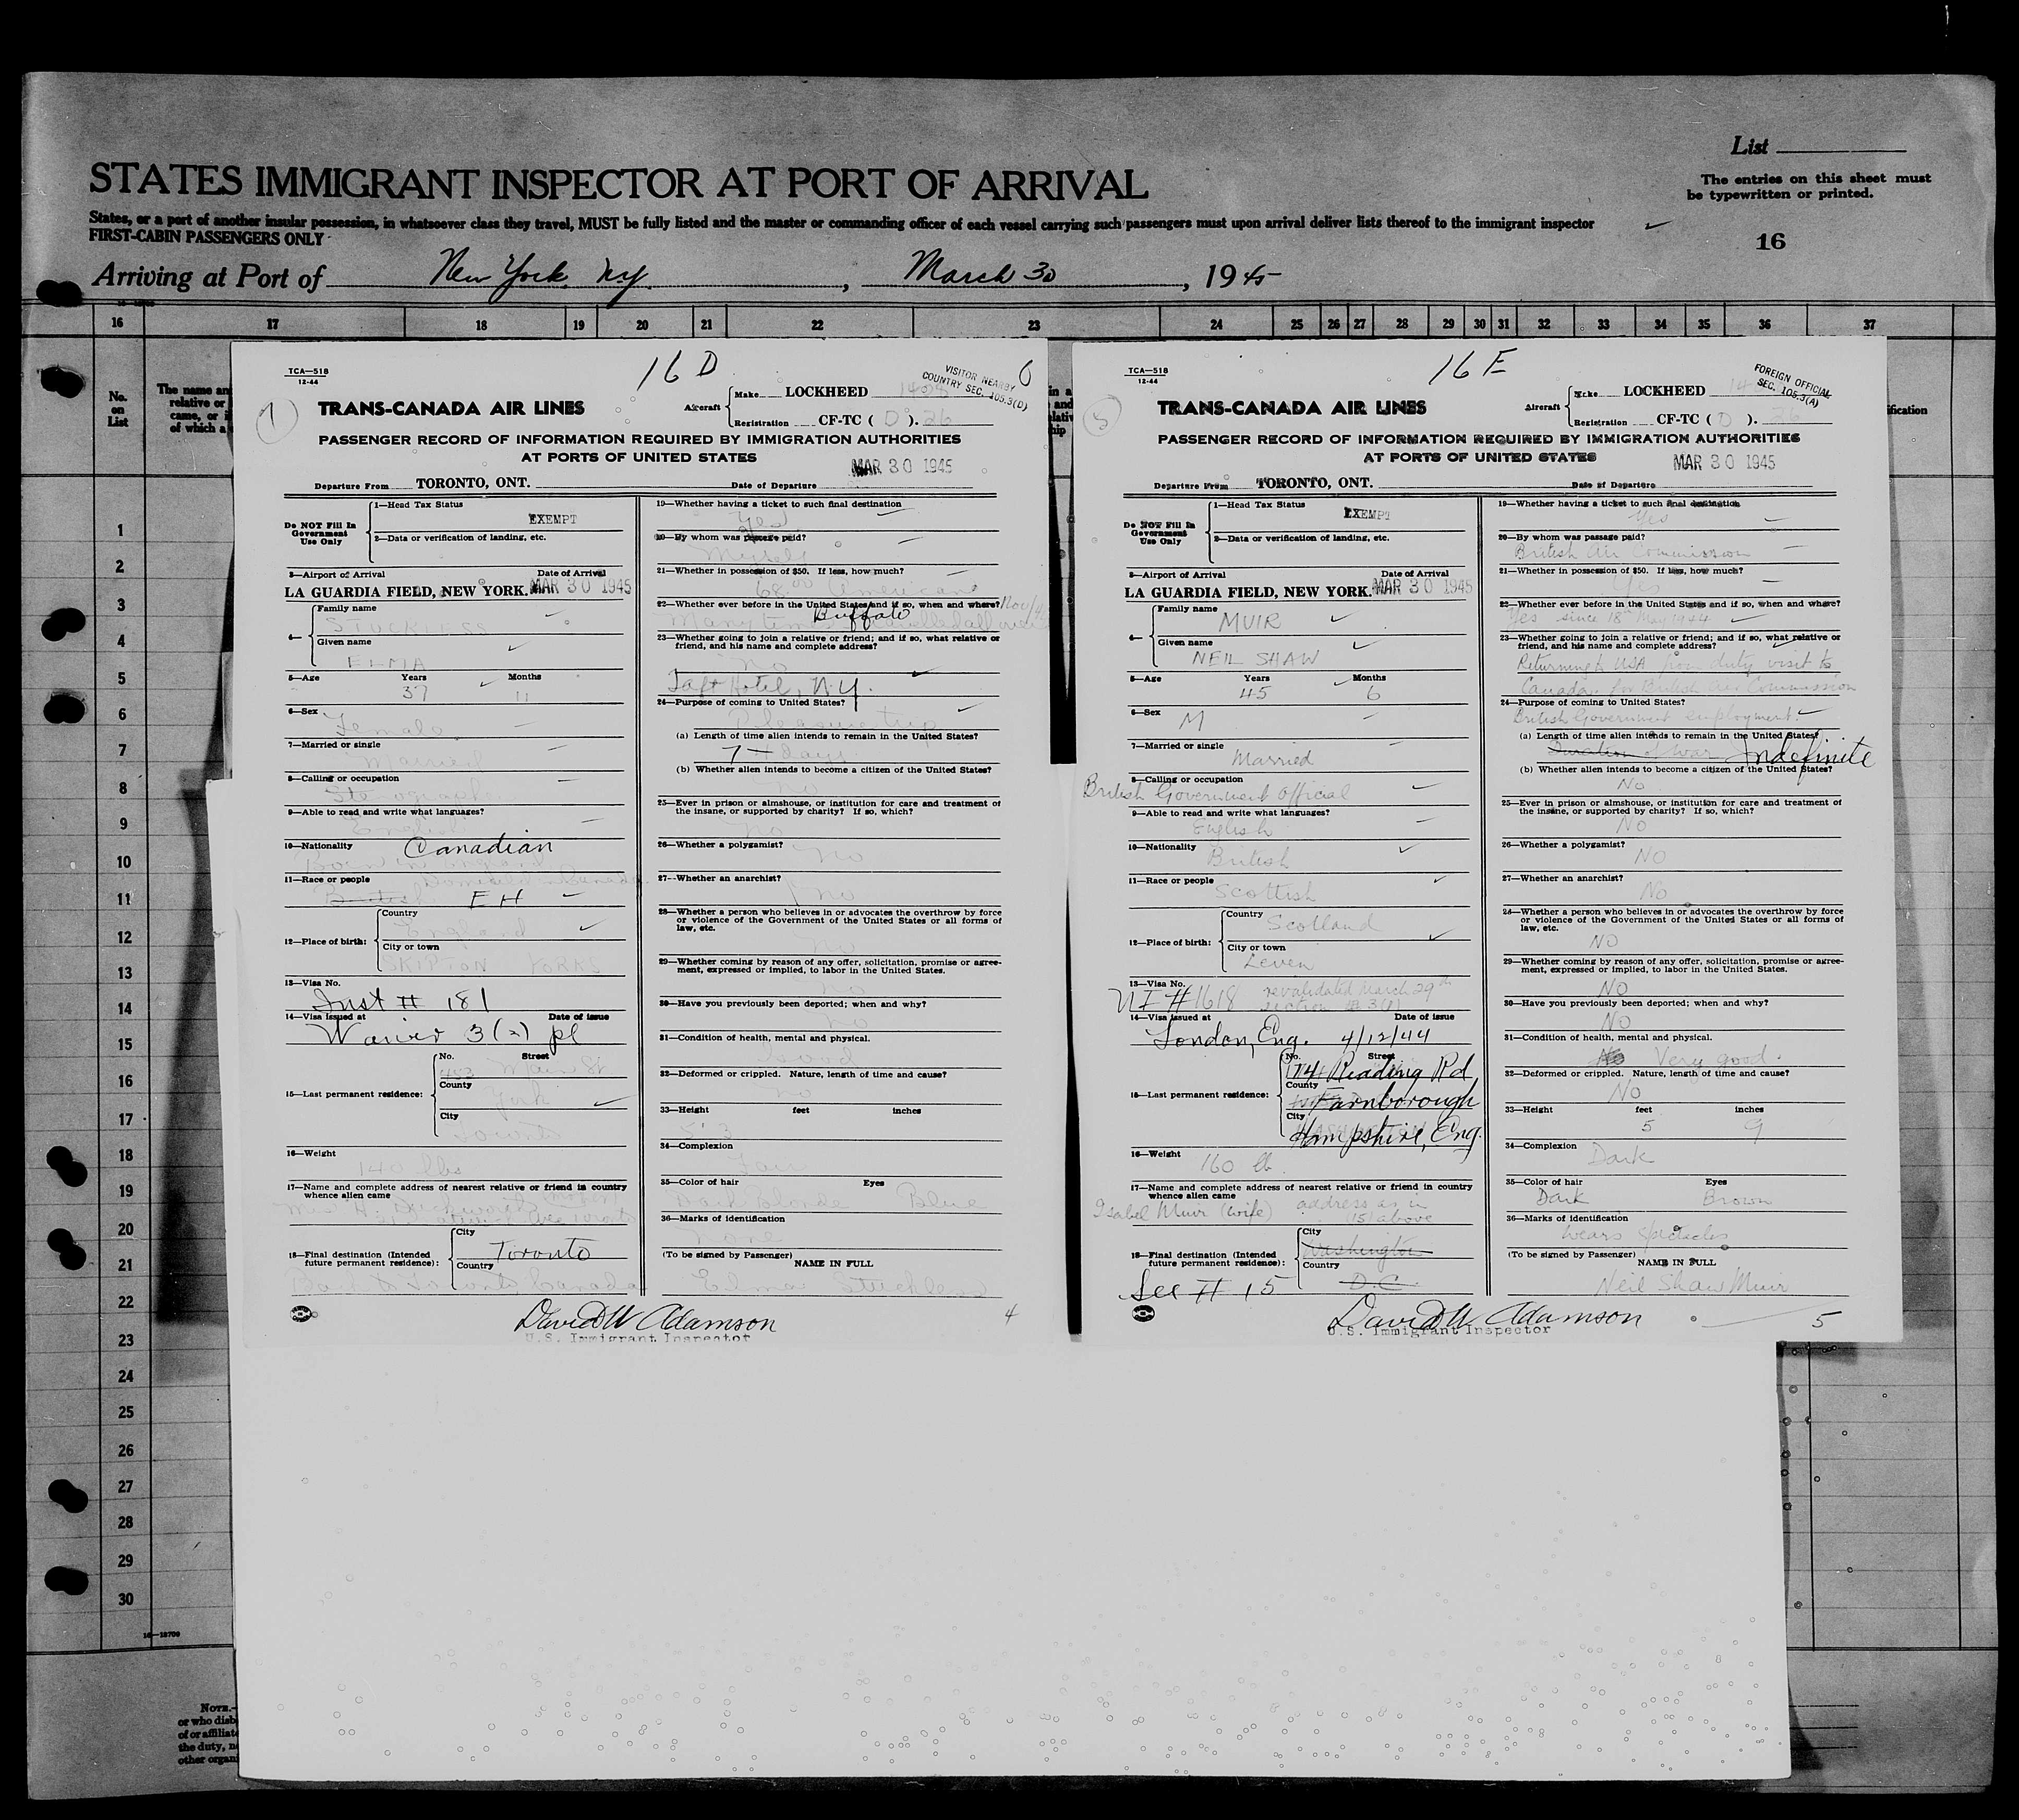 List
STATES IMMIGRANT INSPECTOR AT PORT OF ARRIVAL
The entries on this sheet must
be typewritten or printed.
States, or a port of another insular possession, in whatsoever class they travel, MUST be fully listed and the master or commanding officer of each vessel carrying such passengers must upon arrival deliver lists thereof to the immigrant inspector
FIRST-CABIN PASSENGERS ONLY
16
Arriving at Port of New York, N.Y. , March 30 , 1945
16 17 18 19 20 21 22 23 24 25 26 27 28 29 30 31 32 33 34 35 36 37
No.
on
List
The name an
relative or
came, or i
of which a
1
2
3
4
5
6
7
8
9
10
11
12
13
14
15
16
17
18
19
20
21
22
23
24
25
26
27
28
29
30
16—18709
NOTE.—
or who disb
of or affiliat
the duty, n
other organ
TCA—518
12-44
16 D
VISITOR NEARBY
COUNTRY SEC. 105.3(D)
6
Aircraft
Make LOCKHEED
Registration CF-TC ( D ). 26
TRANS-CANADA AIR LINES
PASSENGER RECORD OF INFORMATION REQUIRED BY IMMIGRATION AUTHORITIES
AT PORTS OF UNITED STATES
MAR 30 1945
Departure From TORONTO, ONT. Date of Departure
Do NOT Fill In
Government
Use Only
1—Head Tax Status
EXEMPT
2—Data or verification of landing, etc.
3—Airport of Arrival Date of Arrival
LA GUARDIA FIELD, NEW YORK. MAR 30 1945
4—
Family name
STUCKLESS
Given name
ELMA
5—Age Years Months
37 11
6—Sex
Female
7—Married or single
Married
8—Calling or occupation
9—Able to read and write what languages?
English
10—Nationality Canadian
Born in England
11—Race or people Domiciled in Canada
British EH
12—Place of birth:
Country
England
City or town
SKIPTON YORKS
13—Visa No.
Inst # 181
14—Visa issued at Date of issue
Waiver 3(2) pl
15—Last permanent residence:
No. Street
Main St
County
York
City
Toronto
16—Weight
140 lbs
17—Name and complete address of nearest relative or friend in country
whence alien came
18—Final destination (Intended
future permanent residence):
City
Toronto
Country
Toronto Canada
19—Whether having a ticket to such final destination
Yes
20—By whom was passage paid?
Myself
21—Whether in possession of $50. If less, how much?
68.00 American
22—Whether ever before in the United States and if so, when and where?
Buffalo
Many times
23—Whether going to join a relative or friend; and if so, what relative or
friend, and his name and complete address?
No
Taft Hotel, N.Y.
24—Purpose of coming to United States?
Pleasure trip
(a) Length of time alien intends to remain in the United States?
7 days
(b) Whether alien intends to become a citizen of the United States?
No
25—Ever in prison or almshouse, or institution for care and treatment of
the insane, or supported by charity? If so, which?
No
26—Whether a polygamist? No
27—Whether an anarchist? No
28—Whether a person who believes in or advocates the overthrow by force
or violence of the Government of the United States or all forms of
law, etc.
No
29—Whether coming by reason of any offer, solicitation, promise or agree-
ment, expressed or implied, to labor in the United States.
No
30—Have you previously been deported; when and why?
No
31—Condition of health, mental and physical.
Good
32—Deformed or crippled. Nature, length of time and cause?
No
33—Height feet inches
5' 3
34—Complexion
Fair
35—Color of hair Eyes
Dark Blonde Blue
36—Marks of identification
None
(To be signed by Passenger) NAME IN FULL
Elma Stuckless
David W. Adamson
U.S. Immigrant Inspector
4
TCA—518
12-44
16 E
FOREIGN OFFICIAL
SEC. 105.3(A)
Aircraft
Make LOCKHEED
Registration CF-TC ( D ).
TRANS-CANADA AIR LINES
PASSENGER RECORD OF INFORMATION REQUIRED BY IMMIGRATION AUTHORITIES
AT PORTS OF UNITED STATES
MAR 30 1945
Departure From TORONTO, ONT. Date of Departure
Do NOT Fill In
Government
Use Only
1—Head Tax Status
EXEMPT
2—Data or verification of landing, etc.
3—Airport of Arrival Date of Arrival
LA GUARDIA FIELD, NEW YORK. MAR 30 1945
4—
Family name
MUIR
Given name
NEIL SHAW
5—Age Years Months
45 6
6—Sex
M
7—Married or single
Married
8—Calling or occupation
British Government Official
9—Able to read and write what languages?
English
10—Nationality
British
11—Race or people
Scottish
12—Place of birth:
Country
Scotland
City or town
Leven
13—Visa No.
#1618 revalidated March 29th
Section 3(1)
14—Visa issued at Date of issue
London, Eng. 4/12/44
15—Last permanent residence:
No. Street
174 Reading Rd
County
Farnborough
City
Hampshire, Eng.
16—Weight
160 lb.
17—Name and complete address of nearest relative or friend in country
whence alien came
Isabel Muir (wife) address as in
(15) above
18—Final destination (Intended
future permanent residence):
City
Washington
Country
D.C.
See # 15
19—Whether having a ticket to such final destination
Yes
20—By whom was passage paid?
British Air Commission
21—Whether in possession of $50. If less, how much?
Yes
22—Whether ever before in the United States and if so, when and where?
Yes since 18th May 1944
23—Whether going to join a relative or friend; and if so, what relative or
friend, and his name and complete address?
Returning to USA from duty visit to
Canada for British Air Commission
24—Purpose of coming to United States?
British Government employment.
(a) Length of time alien intends to remain in the United States?
Duration of war Indefinite
(b) Whether alien intends to become a citizen of the United States?
No
25—Ever in prison or almshouse, or institution for care and treatment of
the insane, or supported by charity? If so, which?
No
26—Whether a polygamist?
NO
27—Whether an anarchist?
No
28—Whether a person who believes in or advocates the overthrow by force
or violence of the Government of the United States or all forms of
law, etc.
NO
29—Whether coming by reason of any offer, solicitation, promise or agree-
ment, expressed or implied, to labor in the United States.
NO
30—Have you previously been deported; when and why?
NO
31—Condition of health, mental and physical.
Very good.
32—Deformed or crippled. Nature, length of time and cause?
NO
33—Height feet inches
5 9
34—Complexion
Dark
35—Color of hair Eyes
Dark Brown
36—Marks of identification
Wears Spectacles
(To be signed by Passenger) NAME IN FULL
Neil Shaw Muir
David W. Adamson
U.S. Immigrant Inspector
5